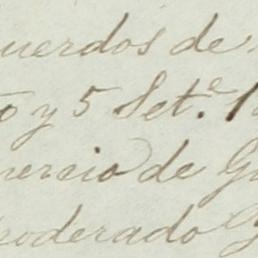 cuerdos de
to y 5 Set.e 1
mercio de Gu
poderado G